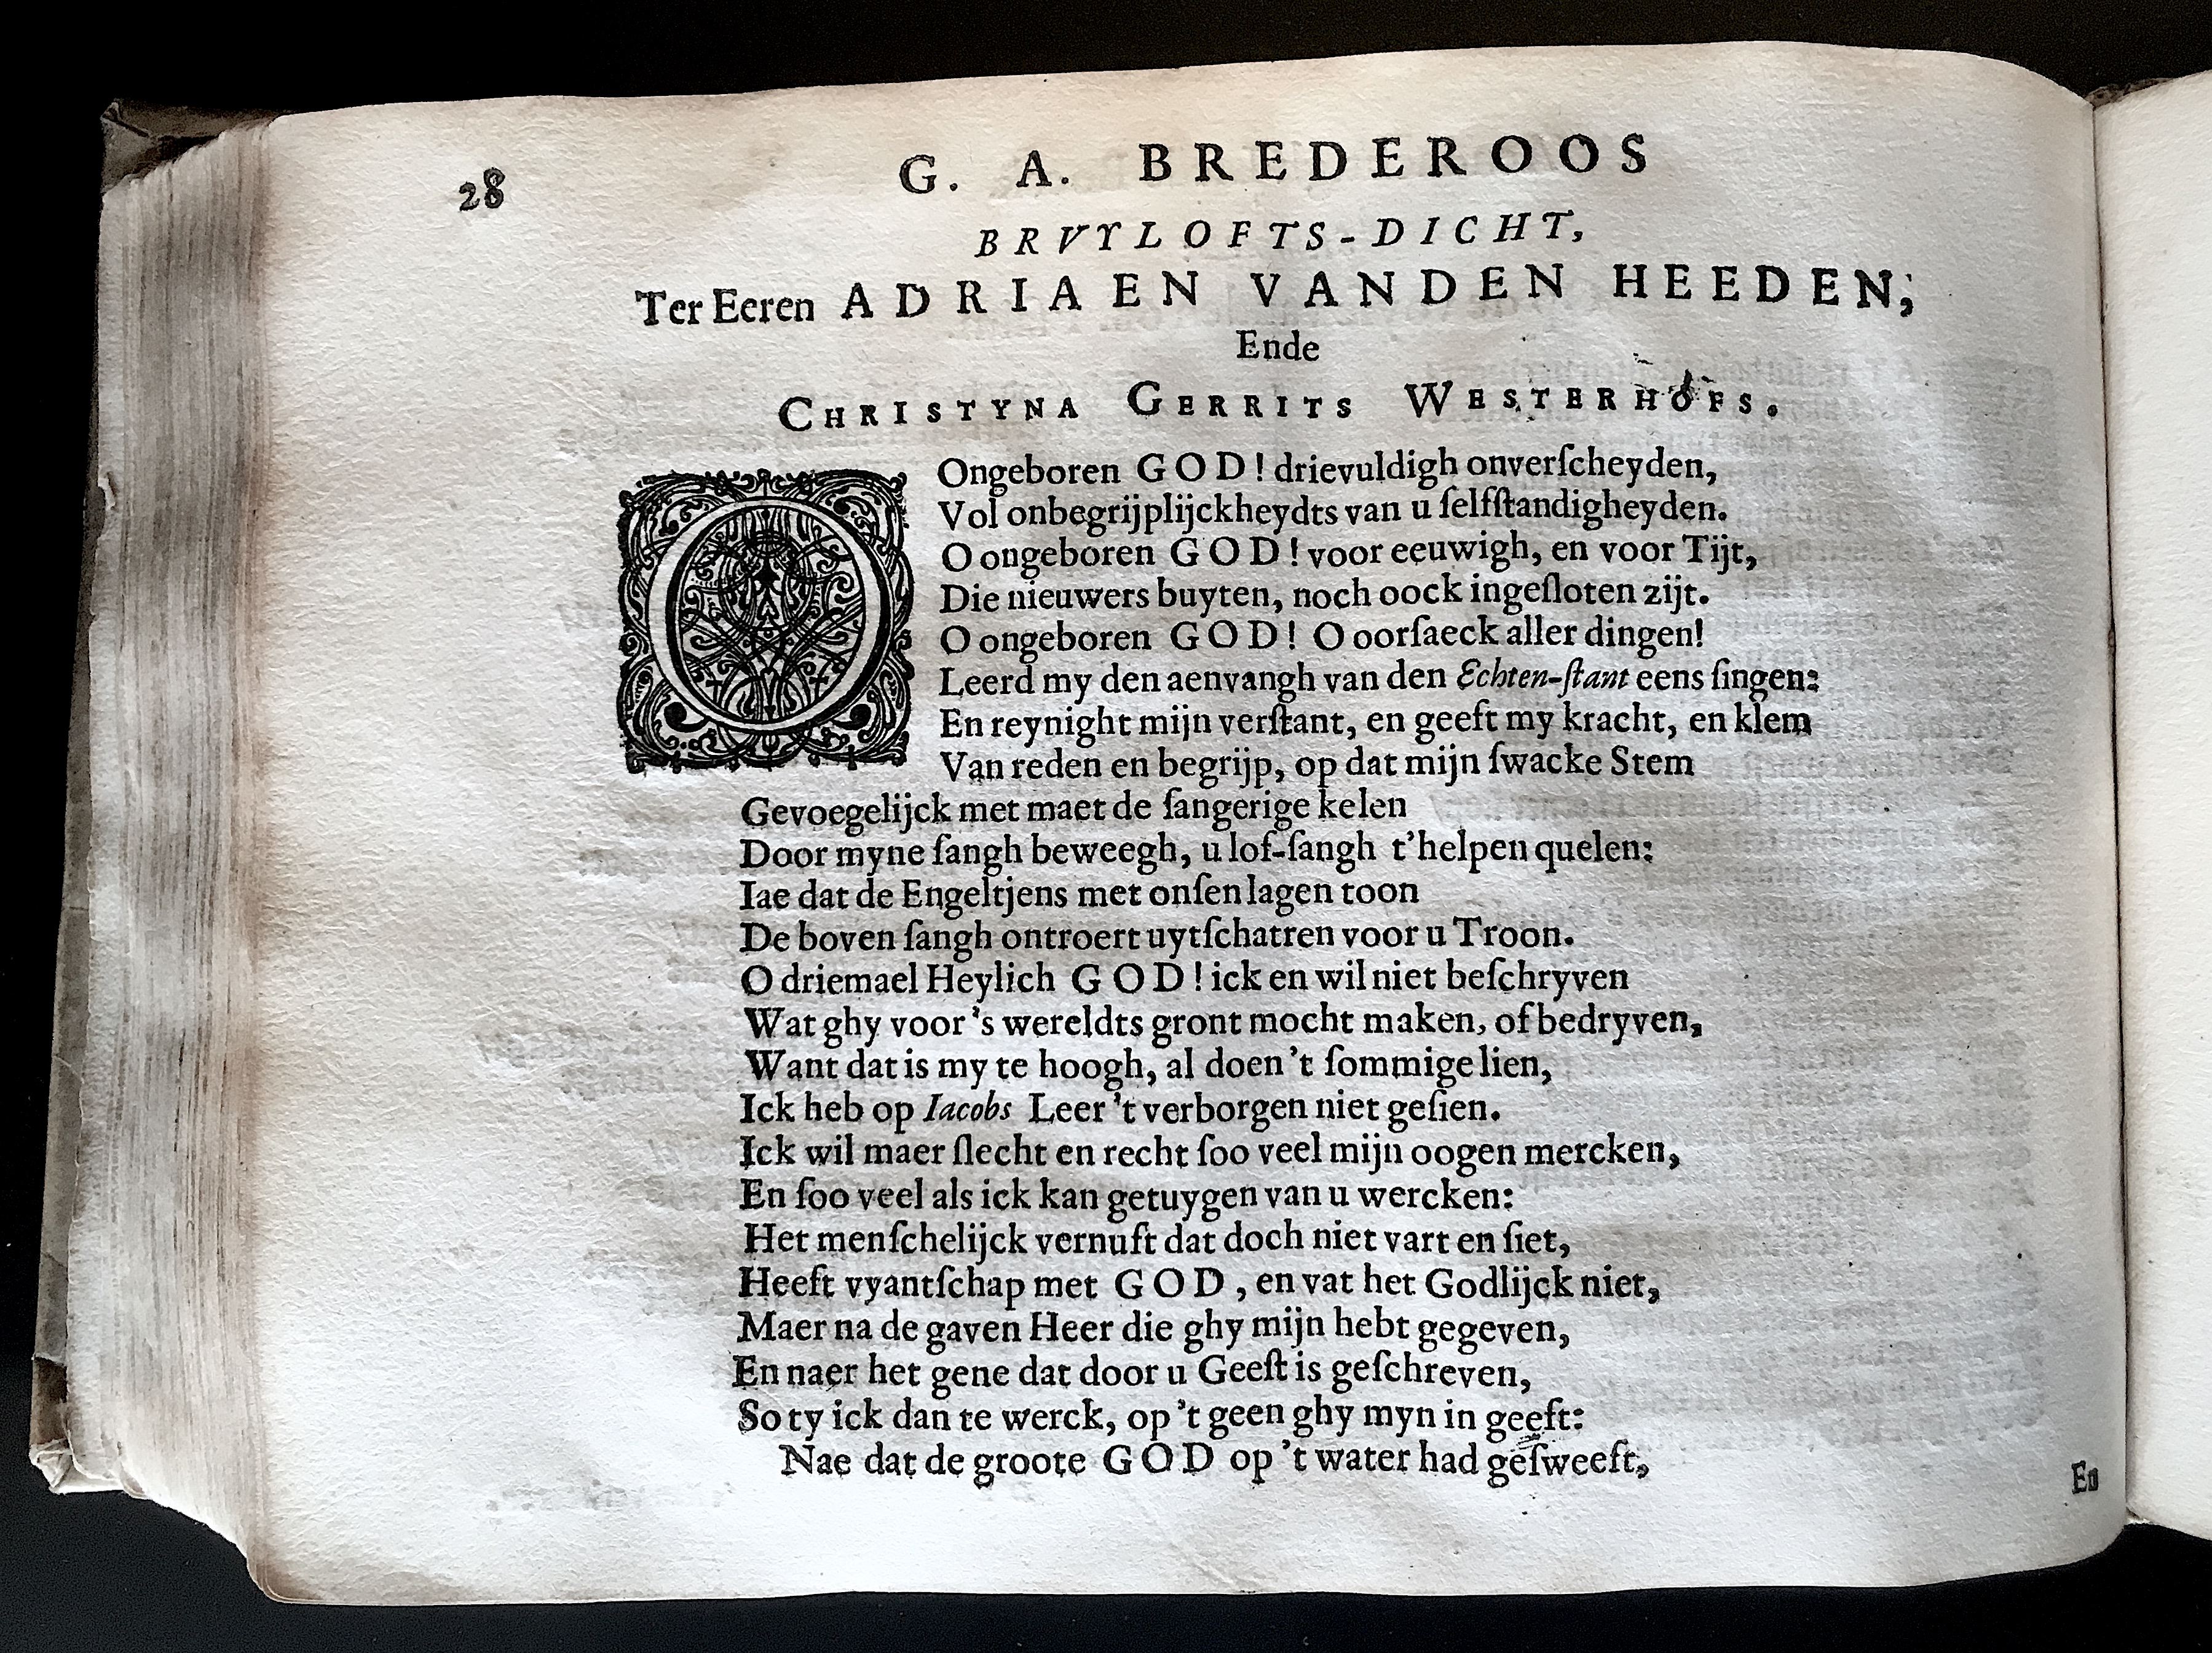 28
G. A. BREDEROOS
BRVYLOFTS-DICHT,
Ter Eeren ADRIAEN VANDEN HEEDEN;
Ende
CHRISTYNA GERRITS WESTERHOFS.
O Ongeboren GOD! drievuldigh onverſcheyden,
Vol onbegrijplijckheydts van u ſelfſtandigheyden.
O ongeboren GOD! voor eeuwigh, en voor Tijt,
Die nieuwers buyten, noch oock ingeſloten zijt.
O ongeboren GOD! O oorſaeck aller dingen!
Leerd my den aenvangh van den Echten-ſtant eens ſingen:
En reynight mijn verſtant, en geeft my kracht, en klem
Van reden en begrijp, op dat mijn ſwacke Stem
Gevoegelijck met maet de ſangerige kelen
Door myne ſangh beweegh, u lof-ſangh t'helpen quelen:
Iae dat de Engeltjens met onſen lagen toon
De boven ſangh ontroert uytſchatren voor u Troon.
O driemael Heylich GOD! ick en wil niet beſchryven
Wat ghy voor 's wereldts gront mocht maken, of bedryven,
Want dat is my te hoogh, al doen 't ſommige lien,
Ick heb op Iacobs Leer 't verborgen niet geſien.
Ick wil maer ſlecht en recht ſoo veel mijn oogen mercken,
En ſoo veel als ick kan getuygen van u wercken:
Het menſchelijck vernuft dat doch niet vart en ſiet,
Heeft vyantſchap met GOD, en vat het Godlijck niet,
Maer na de gaven Heer die ghy mijn hebt gegeven,
En naer het gene dat door u Geeſt is geſchreven,
So ty ick dan te werck, op 't geen ghy myn in geeft:
Nae dat de groote GOD op 't water had geſweeft,
En